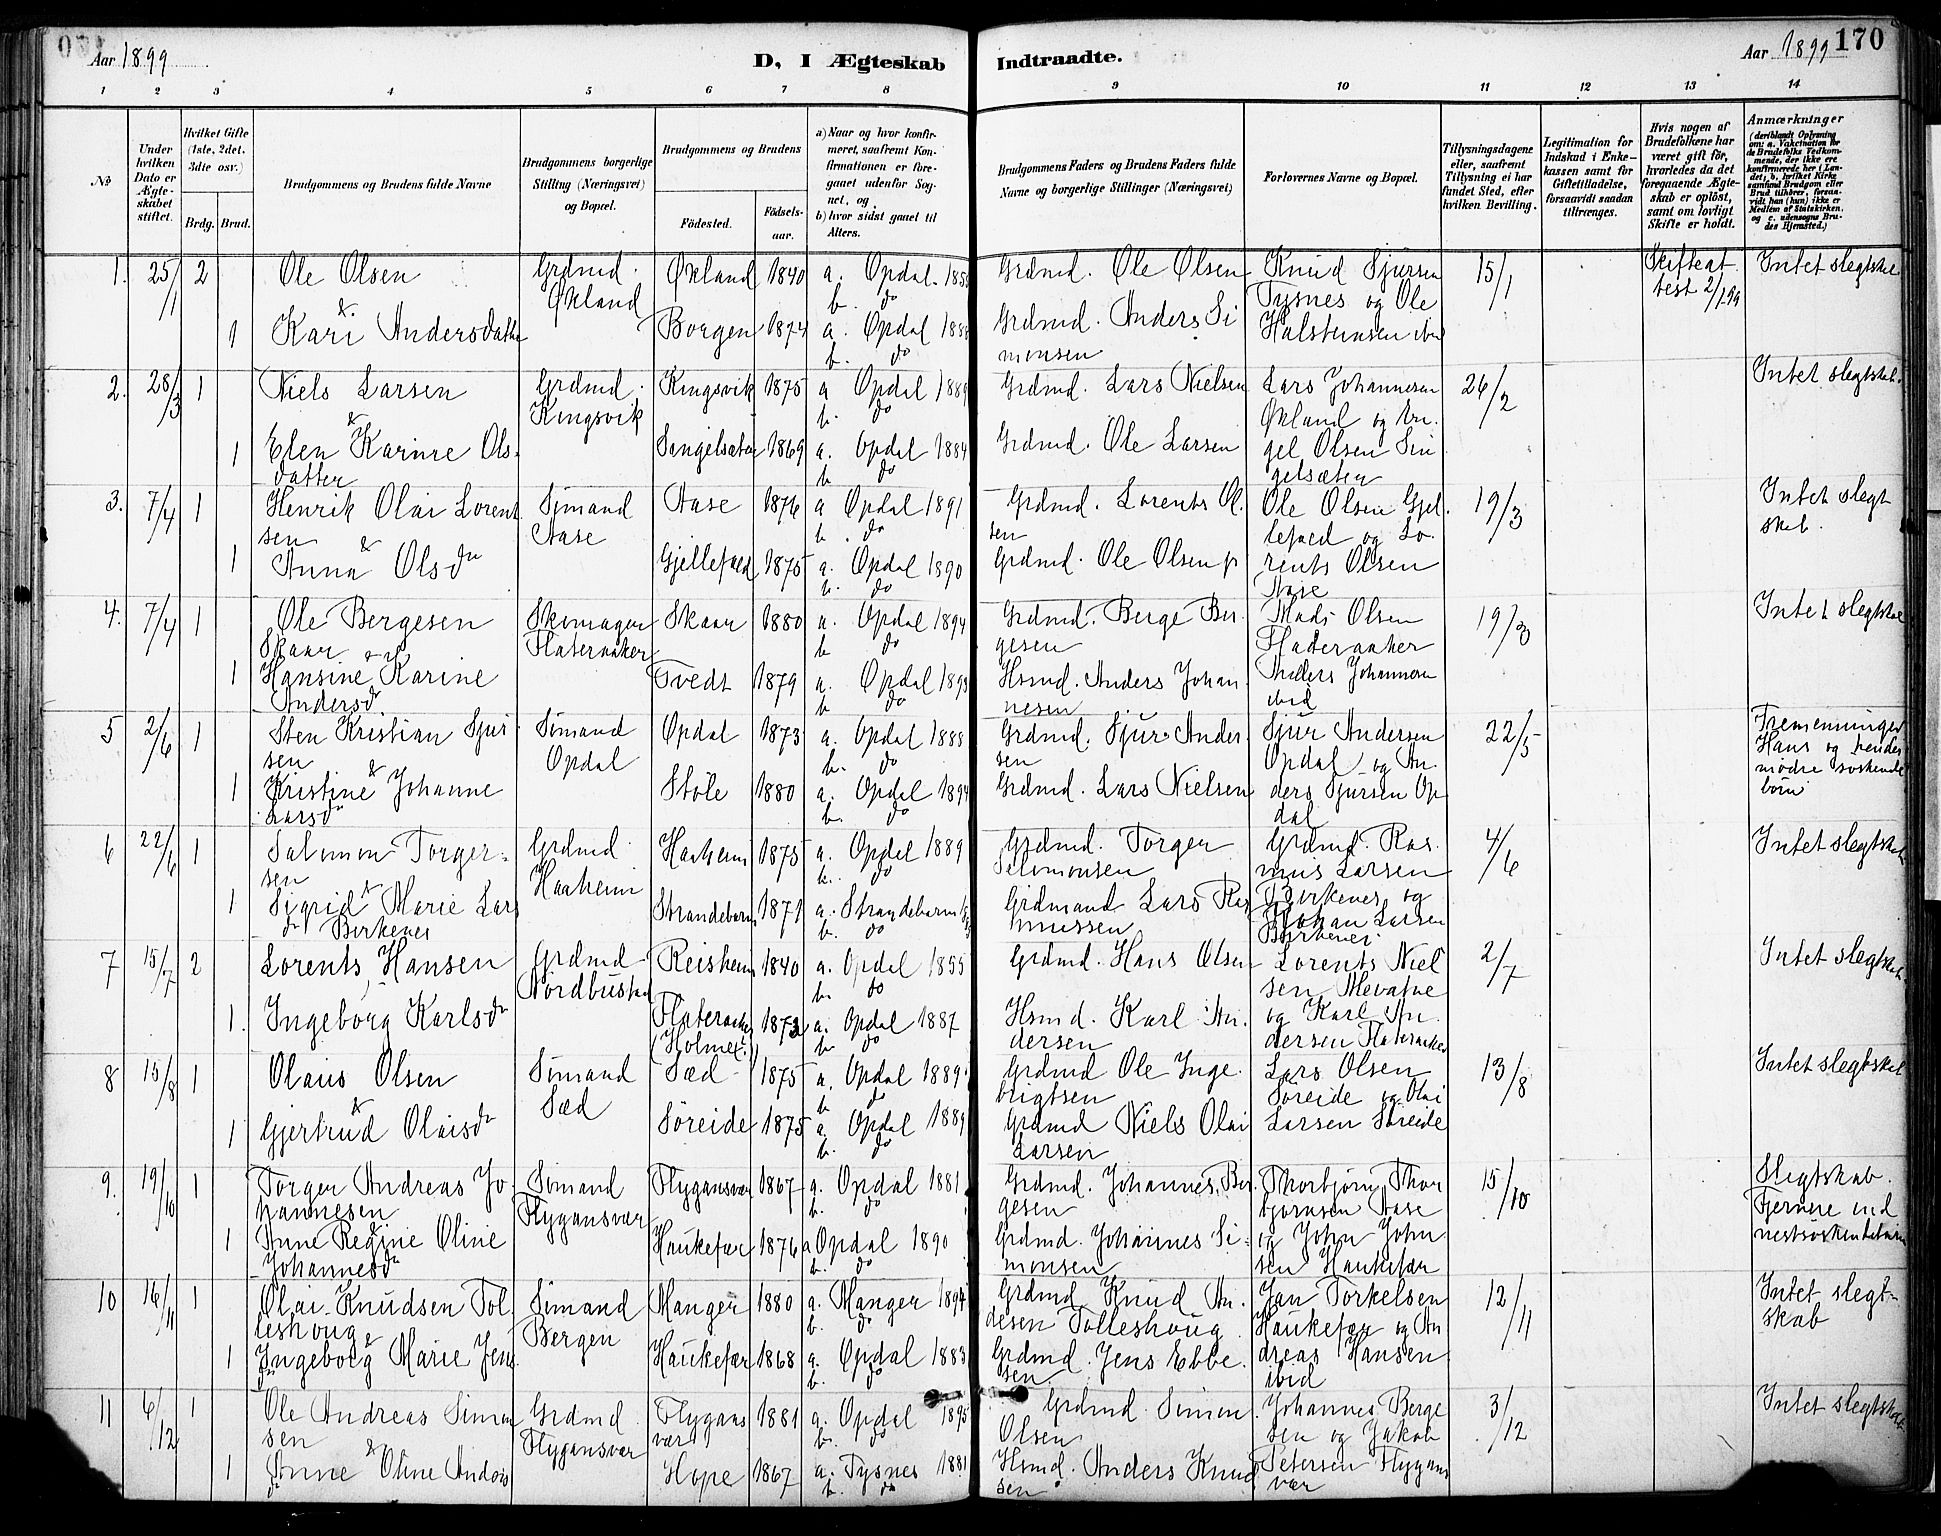 Aar 1899
D, I Ægteskab Indtraadte.
Aar 1899 170
1 2 3 4 5 6 7 8 9 10 11 12 13 14
No
Under hvilken Dato er Ægteskabet stiftet.
Hvilket Gifte (1ste, 2det, 3die osv.)
Brdg. Brud.
Brudgommens og Brudens fulde Navne
Brudgommens borgerlige Stilling (Næringsvei) og Bopæl.
Brudgommens og Brudens
Fødested.
Fødselsaar.
a) Naar og hvor konfirmeret, saafremt Konfirmationen er foregaaet udenfor Sognet, og
b) hvor sidst gaaet til Alters.
Brudgommens Faders og Brudens Faders fulde Navne og borgerlige Stillinger (Næringsvei)
Forlovernes Navne og Bopæl.
Tillysningsdagene eller, saafremt Tillysning ei har fundet Sted, efter hvilken Bevilling.
Legitimation for Indskud i Enkekassen samt for Giftetilladelse, forsaavidt saadan tiltrænges.
Hvis nogen af Brudefolkene har været gift før, hvorledes da det foregaaende Ægteskab er opløst, samt om lovligt Skifte er holdt.
Anmærkninger
1. 25/1 2 Ole Olsen Grdmd. Økland Økland 1840 a. Opdal b. do Grdmd. Ole Olsen Knud Sjursen Tysnes og Ole Halstensen ibd 15/1 Skifteat test 2/1 99 Intet slegtskab
&
1 Kari Andersdatter Borgen 1874 a. Opdal 1888 b. do Grdmd. Anders Simonsen
2. 28/3 1 Niels Larsen Grdmd. Kingsvik Kingsvik 1875 a Opdal 1889 b. do Grdmd. Lars Nielsen Lars Johannesen Økland og Engel Olsen Singelsæten 26/2 Intet slegtskab.
&
1 Elen Karine Olsdatter Singelsæten 1869 a. Opdal 1884 b do Grdmd. Ole Larsen
3. 7/4 1 Henrik Olai Lorentsen Sømand Aase Aase 1876 a Opdal 1891 b. do Grdmd. Lorents Olsen Ole Olsen Gjellefald og Lorents Olsen Aase 19/3 Intet slegtskab.
&
1 Anna Olsdr Gjellefald 1875 a. Opdal 1890 b. do Grdmd. Ole Olsen
4. 7/4 1 Ole Bergesen Skaar Skomager Flateraaker Skaar 1880 a. Opdal 1894 b do Grdmd. Berge Bergesen Mads Olsen Fladeraaker Anders Johannesen ibid 19/3 Intet slegtskab
&
1 Hansine Karine Andersd. Tvedt 1879 a. Opdal 1893 b do Hsmd. Anders Johannesen
5 2/6 1 Sten Kristian Sjursen Sømand Opdal Opdal 1873 a. Opdal 1888 b. do Grdmd. Sjur Andersen Sjur Andersen Opdal og Anders Sjursen Opdal 22/5 Tremenninger Hans og hendes mødre søskendebørn
&
1 Kristine Johanne Larsdr Støle 1880 a. Opdal 1894 b. do Grdmd. Lars Nielsen
6 22/6 1 Salomon Torgersen Grdmd. Haaheim Haaheim 1875 a. Opdal 1889 b. do Grdmd. Torger Salomonsen Grdmd. Rasmus Larsen Birkenes og Johan Larsen Birkenes 4/6 Intet slegtskab
&
1 Sigrid Marie Larsdr Birkenes Strandebarm 1871 a. Strandebarm b. do Grdmand Lars Rasmussen
7 15/7 2 Lorents Hansen Grdmd Nordbustad Reisheim 1840 a. Opdal 1855 b. do Grdmd. Hans Olsen Lorents Nielsen Alevatne og Karl Andersen Flateraaker 2/7 Intet slegtskab
1. Ingeborg Karlsdr Flateraaker (Holmet) 1872 a. Opdal 1887 b do Hsmd. Karl Andersen
8 15/8 1 Olaus Olsen Sømand Sæd Sæd 1875 a. Opdal 1889 b do Grdmd Ole Ingebrigtsen Lars Olsen Søreide og Olai Larsen Søreide 13/8 Intet slegtskab
&
1 Gjertrud Olaisdr Søreide 1875 a. Opdal 1889 b. do Grdmd Niels Olai Larsen
9. 19/10 1 Torger Andreas Johannesen Sømand Flygansvær Flygansvær 1867 a. Opdal 1881 b. do Grdmd. Johannes Bergesen Thorbjørn Thorbjørnsen Aase og John Johnsen Haukefær 15/10 Slegtskab. Fjernere end nestsøskendebørn
&
1 Anne Regine Oline Johannesdr Haukefær 1876 a Opdal 1890 b. do Grdmd. Johannes Simonsen
10 16/11 1 Olai Knudsen Tolleshoug Sømand Bergen Manger 1880 a. Manger 1894 b. do Grdmd Knud Andesen Tolleshoug Jan Torkelsen Haukefær og Andreas Hansen ibid 12/11 Intet slegtskab
&
1 Ingeborg Marie Jensdr Haukefær 1868 a. Opdal 1883 b. do Grdmd. Jens Ebbesen
11 6/12 1 Ole Andreas Simonsen Grdmd. Flygansvær Flygansvær 1881 a. Opdal 1895 b. do Grdmd. Simon Olsen Johannes Bergesen og Jakob Petersen Flygansvær 3/12 Intet slegtskab
&
1 Anne Oline Andersdr Hope 1867 a. Tysnes 1881 b. do Hsmd. Anders Knudsen